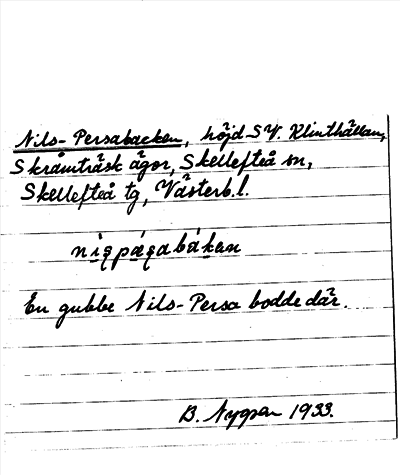 Nils-Persabacken, höjd SV. Klinthällan,
Skråmträsk ägor, Skellefteå sn,
Skellefteå tg, Västerb. l.
En gubbe Nils-Persa bodde där.
B. Nygren 1933.